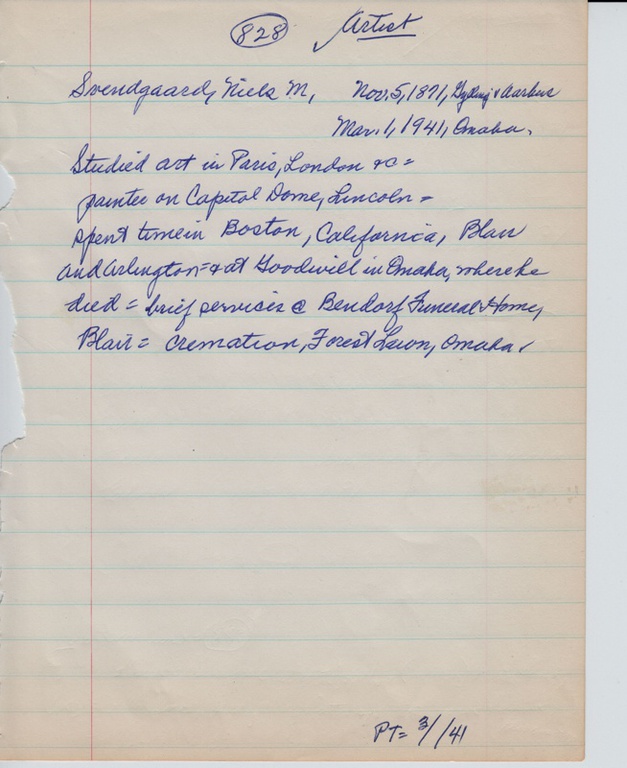 828 Artist
Svendgaard, Niels M, Nov. 5, 1871, Aarhus
Mar. 1, 1941, Omaha.
Studied art in Paris, London &c =
painter on Capitol Dome, Lincoln =
spent time in Boston, California, Blair
and Arlington = & at Goodwill in Omaha, where he
died = brief services @ Bendorf Funeral Home,
Blair = cremation, Forest Lawn, Omaha.
PT = 3/1/41